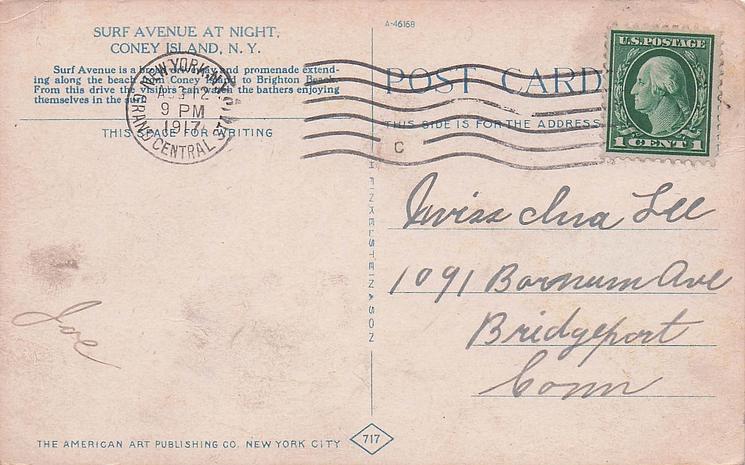 SURF AVENUE AT NIGHT,
CONEY ISLAND, N. Y.
Surf Avenue is a drive and promenade extend-
ing along the beach from Coney Island to Brighton Beach.
From this drive the visitors can watch the bathers enjoying
themselves in the
THIS SPACE FOR WRITING
NEW YORK, N.Y.
AUG 12
9 PM
1917
GRAND CENTRAL STA.
C
A-46168
POST CARD
THIS SIDE IS FOR THE ADDRESS
U.S. POSTAGE
1 CENT 1
H FINKELSTEIN & SON
Miss Ina Lee
1091 Barnum Ave
Bridgeport
Conn
Joe
THE AMERICAN ART PUBLISHING CO. NEW YORK CITY
717